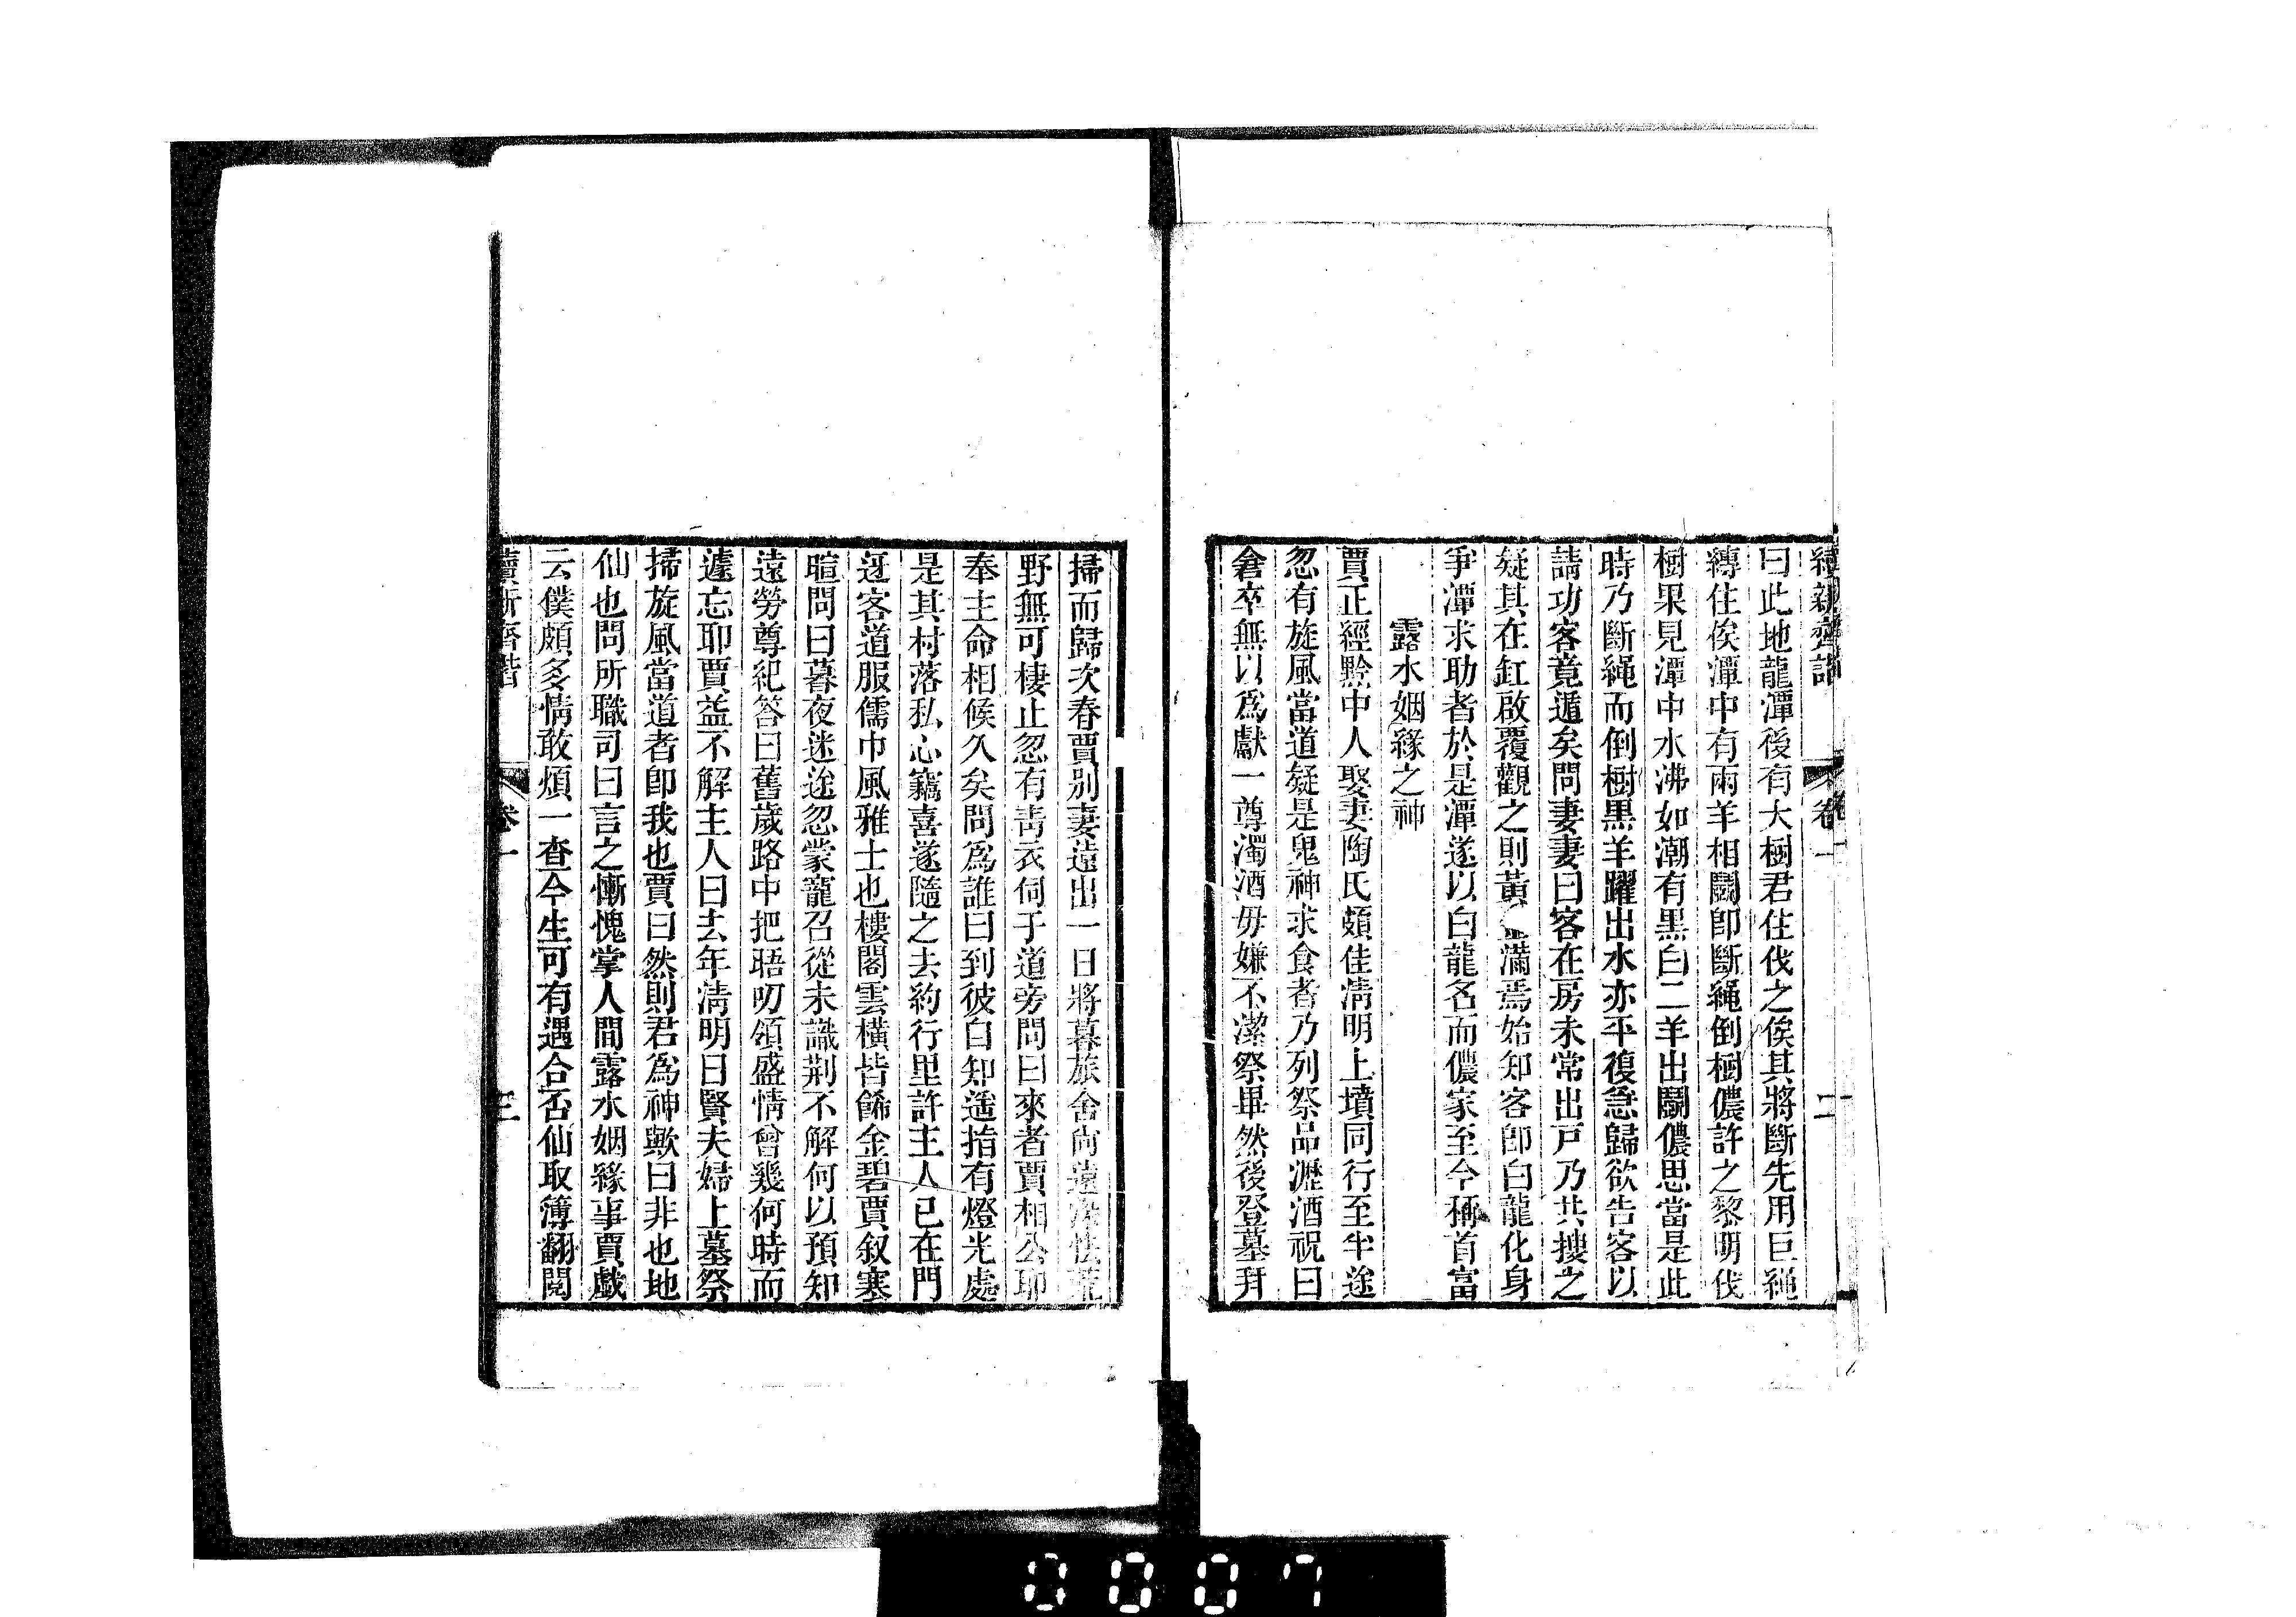 續新齊諧 卷一 二
曰此地龍潭後有大樹君住伐之俟其將斷先用巨繩
縛住俟潭中有兩羊相鬭卽斷繩倒樹儂許之黎明伐
樹果見潭中水沸如潮有黑白二羊出鬭儂思當是此
時乃斷繩而倒樹黑羊躍出水亦平復急歸欲告客以
請功客竟遁矣問妻妻曰客在房未常出戸乃共搜之
疑其在缸啟覆觀之則黃滿焉始知客卽白龍化身
爭潭求助者於是潭遂以白龍名而儂家至今稱首富
露水姻緣之神
賈正經黔中人娶妻陶氏頗佳淸明上墳同行至半途
忽有旋風當道疑是鬼神求食者乃列祭品瀝酒祝曰
倉卒無以爲獻一尊濁酒毋嫌不潔祭畢然後登墓拜
掃而歸次春賈別妻遠出一日將暮旅舍尙遠深怯荒
野無可棲止忽有靑衣伺于道旁問曰來者賈相公耶
奉主命相候久矣問爲誰曰到彼自知遥指有燈光處
是其村落私心竊喜遂隨之去約行里許主人已在門
迓客道服儒巾風雅士也樓閣雲橫皆餙金碧賈叙寒
暄問曰暮夜迷途忽蒙寵召從未識荆不解何以預知
遠勞尊紀答曰舊歲路中把晤叨領盛情曾幾何時而
遽忘耶賈益不解主人曰去年淸明日賢夫婦上墓祭
掃旋風當道者卽我也賈曰然則君爲神歟曰非也地
仙也問所職司曰言之慚愧掌人間露水姻緣事賈戲
云僕頗多情敢煩一查今生可有遇合否仙取簿翻閱
續新齊諧 卷一 三
0007